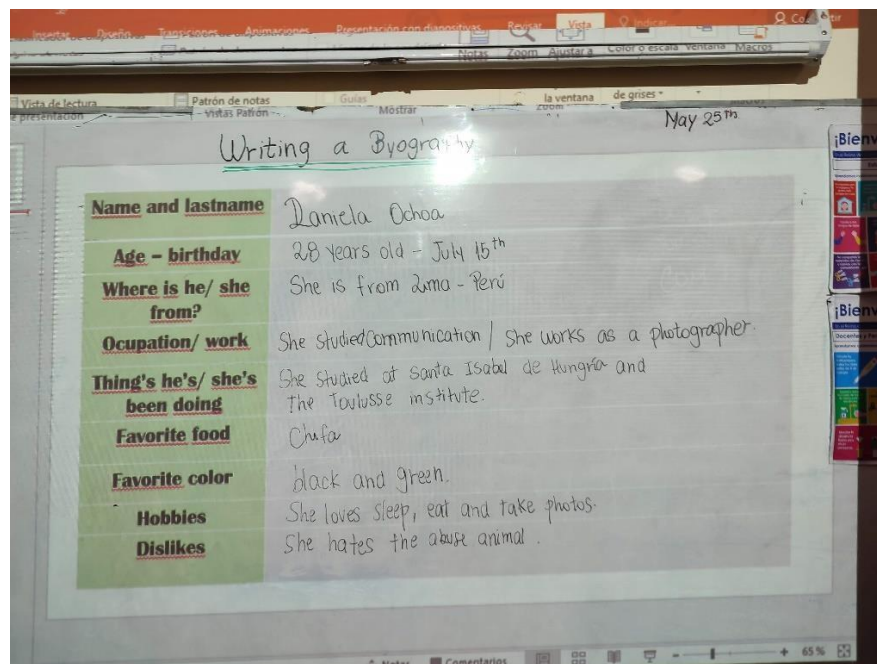 Insertar Diseño Transiciones Animaciones Presentación con diapositivas Revisar Vista
Notas Zoom Ajustar a Color o escala Ventana Macros
Vista de lectura Patrón de notas Guías la ventana de grises
presentación Vistas Patrón Mostrar Zoom
May 25th
Writing a Byography
¡Bienv
Name and lastname Daniela Ochoa
Age – birthday 28 years old - July 15th
Where is he/ she She is from Lima - Perú
from?
¡Bienv
Ocupation/ work She studied Communication / She works as a photographer.
Thing's he's/ she's She studied at Santa Isabel de Hungría and
been doing The Toulusse institute.
Favorite food Chifa
Favorite color black and green.
Hobbies She loves sleep, eat and take photos.
Dislikes She hates the abuse animal.
Notas Comentarios 65 %